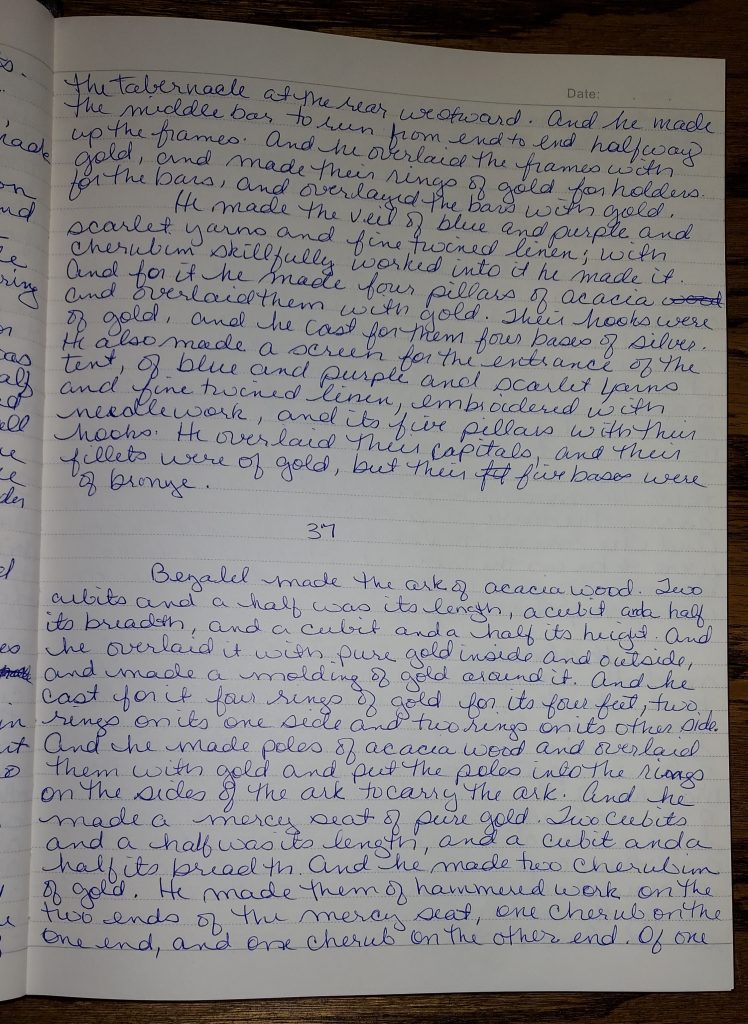 Date:
the tabernacle at the rear westward. And he made
the middle bar to run from end to end halfway
up the frames. And he overlaid the frames with
gold, and made their rings of gold for holders
for the bars, and overlayed the bars with gold.
He made the veil of blue and purple and
scarlet yarns and fine twined linen; with
cherubim skillfully worked into it he made it.
And for it he made four pillars of acacia
and overlaid them with gold. Their hooks were
of gold, and he cast for them four bases of silver.
He also made a screen for the entrance of the
tent, of blue and purple and scarlet yarns
and fine twined linen, embroidered with
needlework, and its five pillars with their
hooks. He overlaid their capitals, and their
fillets were of gold, but their five bases were
of bronze.
37
Bezalel made the ark of acacia wood. Two
cubits and a half was its length, a cubit and a half
its breadth, and a cubit and a half its height. And
he overlaid it with pure gold inside and outside,
and made a molding of gold around it. And he
cast for it four rings of gold for its four feet, two
rings on its one side and two rings on its other side.
And he made poles of acacia wood and overlaid
them with gold and put the poles into the rings
on the sides of the ark to carry the ark. And he
made a mercy seat of pure gold. Two cubits
and a half was its length, and a cubit and a
half its breadth. And he made two cherubim
of gold. He made them of hammered work on the
two ends of the mercy seat, one cherub on the
one end, and one cherub on the other end. Of one